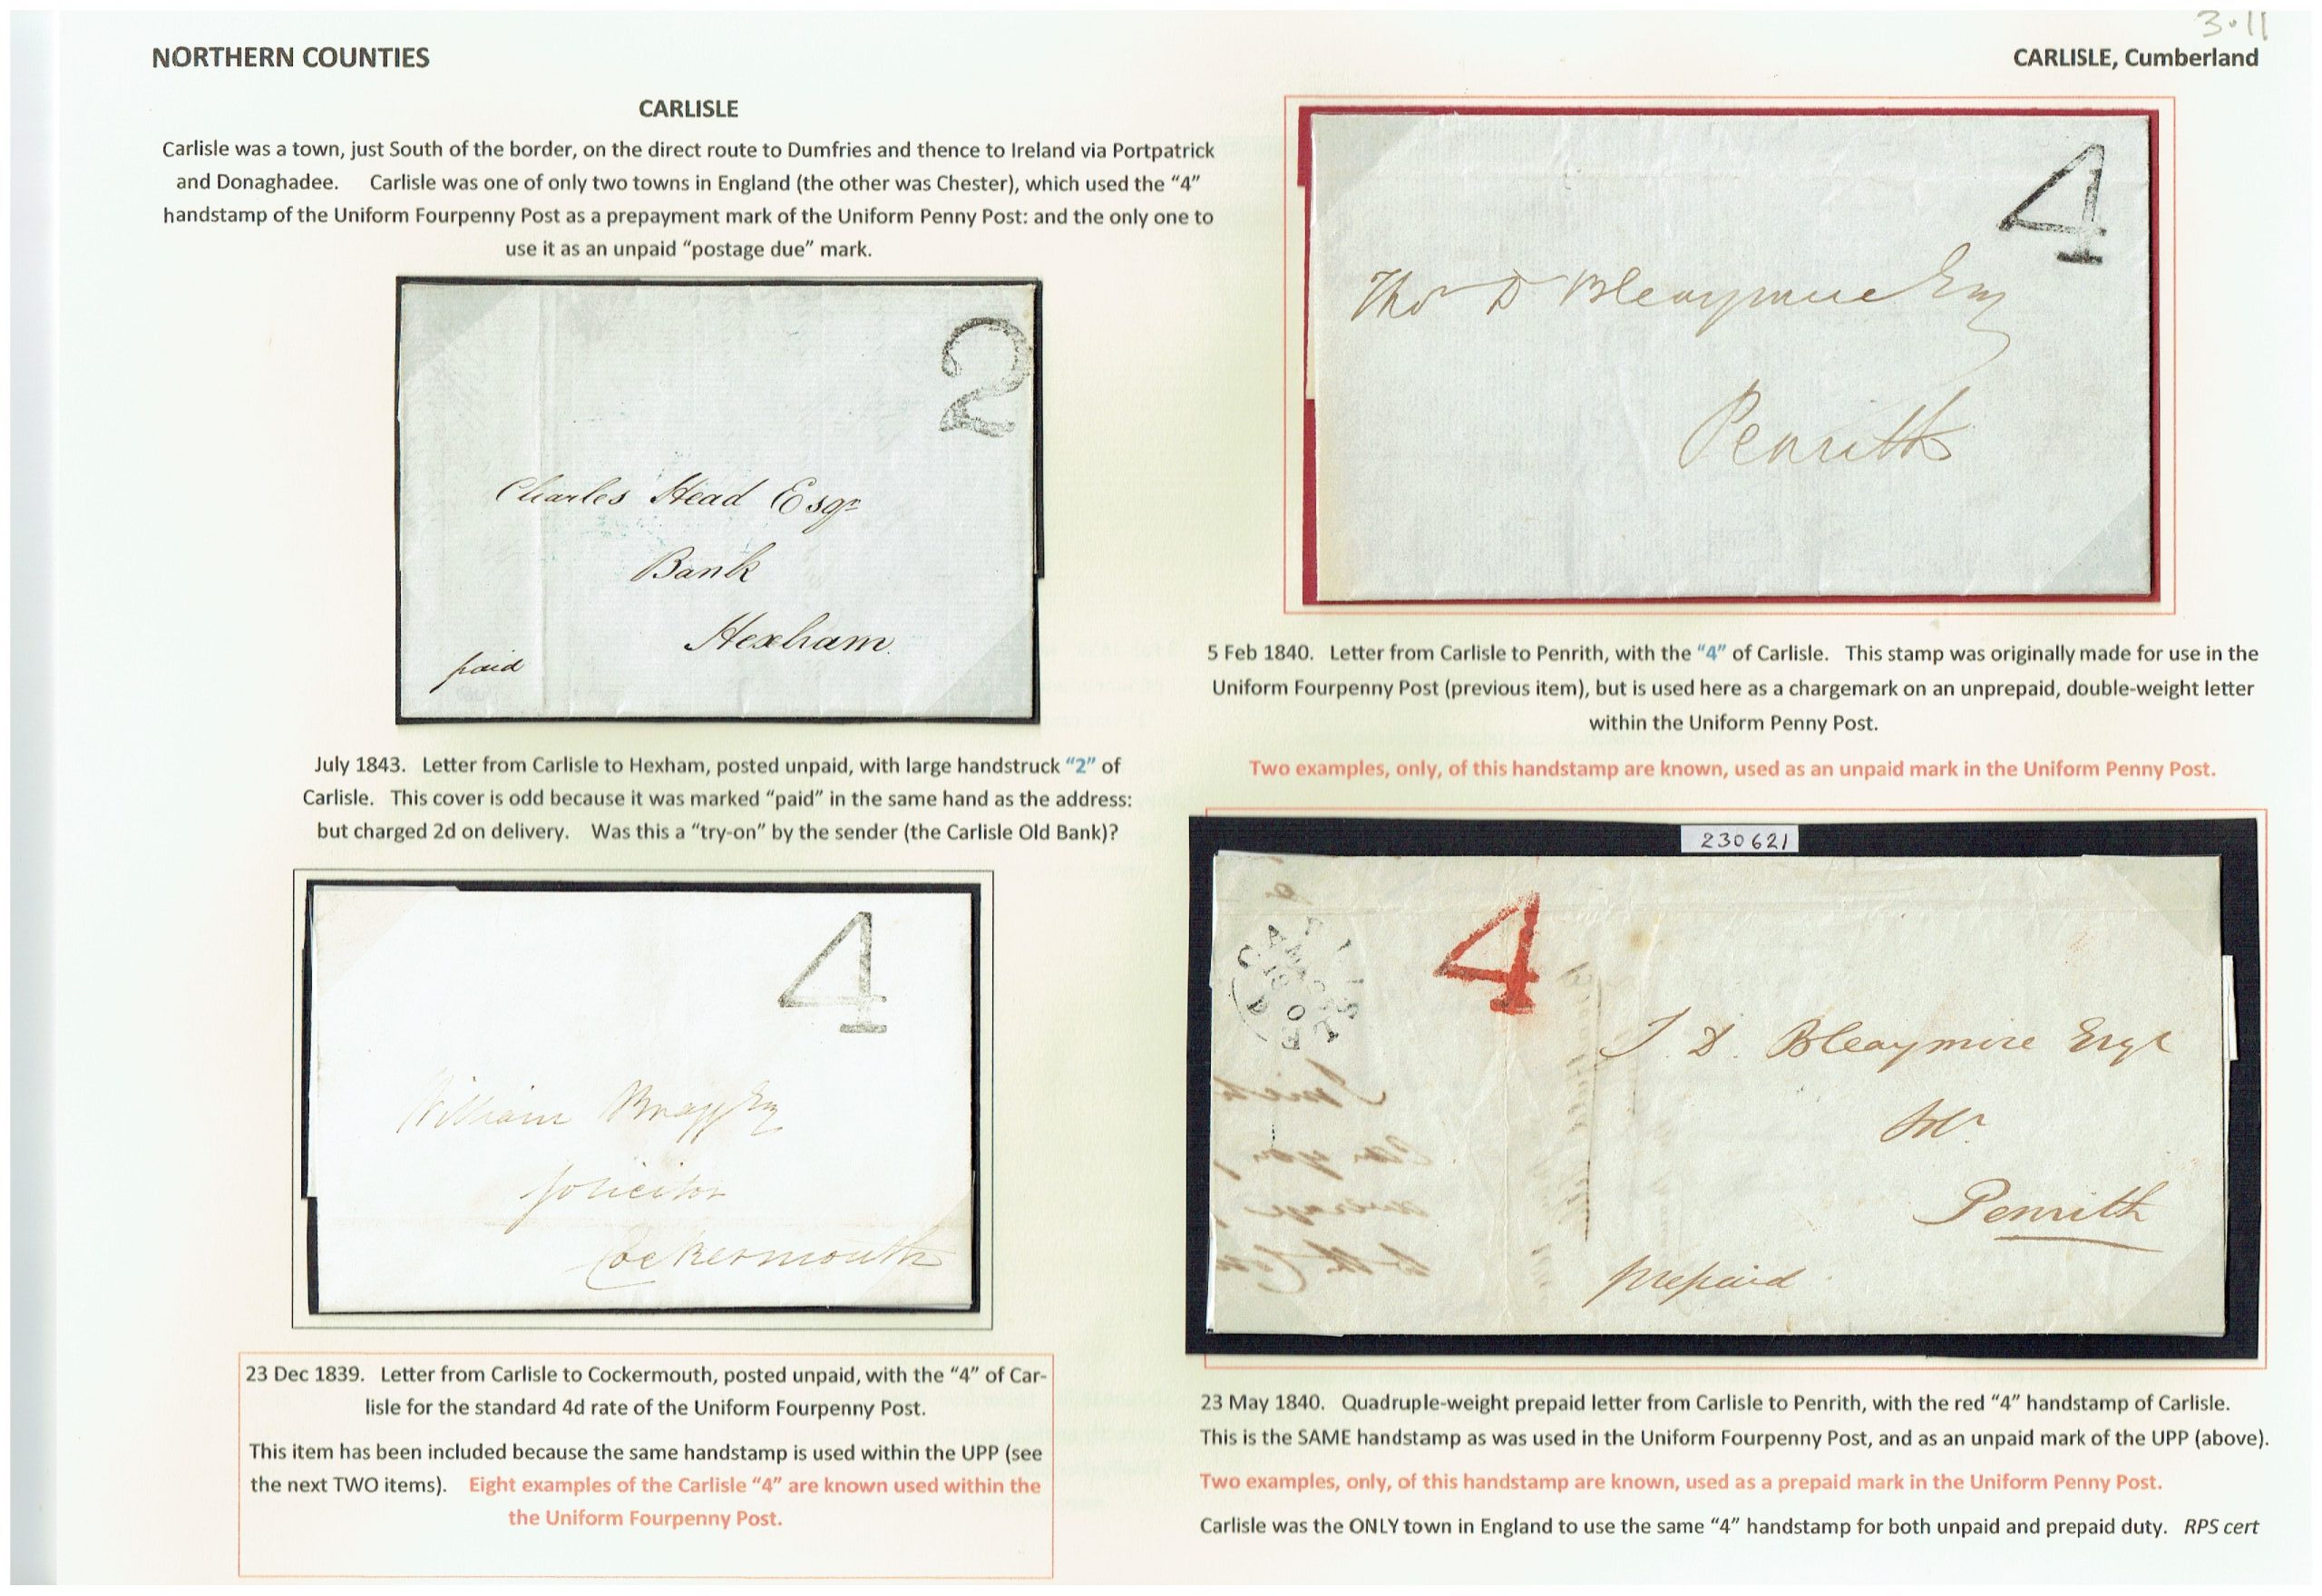 3.11
NORTHERN COUNTIES
CARLISLE, Cumberland
CARLISLE
Carlisle was a town, just South of the border, on the direct route to Dumfries and thence to Ireland via Portpatrick
and Donaghadee. Carlisle was one of only two towns in England (the other was Chester), which used the “4”
handstamp of the Uniform Fourpenny Post as a prepayment mark of the Uniform Penny Post: and the only one to
use it as an unpaid “postage due” mark.
2
Charles Head Esqr
Bank
Hexham
paid
July 1843. Letter from Carlisle to Hexham, posted unpaid, with large handstruck “2” of
Carlisle. This cover is odd because it was marked “paid” in the same hand as the address:
but charged 2d on delivery. Was this a “try-on” by the sender (the Carlisle Old Bank)?
4
William Bragg Esq
Solicitor
Cockermouth
23 Dec 1839. Letter from Carlisle to Cockermouth, posted unpaid, with the “4” of Car-
lisle for the standard 4d rate of the Uniform Fourpenny Post.
This item has been included because the same handstamp is used within the UPP (see
the next TWO items). Eight examples of the Carlisle “4” are known used within the
the Uniform Fourpenny Post.
4
Thos D Bleaymire Esq
Penrith
5 Feb 1840. Letter from Carlisle to Penrith, with the “4” of Carlisle. This stamp was originally made for use in the
Uniform Fourpenny Post (previous item), but is used here as a chargemark on an unprepaid, double-weight letter
within the Uniform Penny Post.
Two examples, only, of this handstamp are known, used as an unpaid mark in the Uniform Penny Post.
230621
4
T. D. Bleaymire Esqr
Solr
Penrith
prepaid
23 May 1840. Quadruple-weight prepaid letter from Carlisle to Penrith, with the red “4” handstamp of Carlisle.
This is the SAME handstamp as was used in the Uniform Fourpenny Post, and as an unpaid mark of the UPP (above).
Two examples, only, of this handstamp are known, used as a prepaid mark in the Uniform Penny Post.
Carlisle was the ONLY town in England to use the same “4” handstamp for both unpaid and prepaid duty. RPS cert